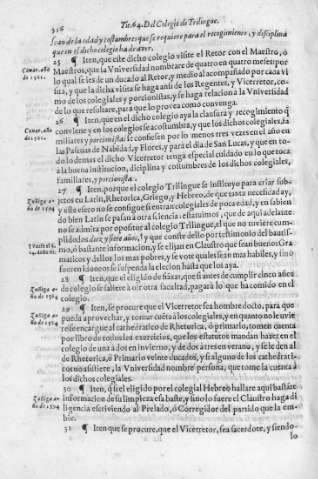 936 Tit.64. Del Colegio de Trilingue.
sean de la edad y costumbres que se requiere para el recogimiento, y disciplina
que en el dicho colegio ha de aver.
25 ¶ Iten, que este dicho colegio visite el Retor con el Maestro, ò
Maestros, que la Vniversidad nombrare de quatro en quatro meses por
lo qual se les de un ducado al Retor, y medio al acompañado por cada vi
sita, y que la dicha visita se haga ansi de los Regentes, y Vicerretor, co
mo de los colegiales y porcionistas, y se haga relacion à la Vniversidad
de lo que resultare, para que lo provea como convenga.
26 ¶ Iten, que en el dicho colegio aya la clausura y recogimiento q̃
conviene y en los colegios se acostumbra, y que los dichos colegiales, fa
miliares y porcionistas se confiessen por lo menos tres vezes en el año en
las Pascuas de Nabidad, y Flores, y para el dia de San Lucas, y que en to-
do lo demas el dicho Vicerretor tenga especial cuidado en lo que toca
à la buena institucion, diciplina y costumbres de los dichos colegiales,
familiares, y porcionistas.
27 ¶ Iten, porque el colegio Trilingue se instituyo para criar sub-
jetos en Latin, Rhetorica, Griego, y Hebreo, de que ay tanta necesidad,
y este efeto no se consigue si entran colegiales de poca edad, y en sabien
do bien Latin se pasan à otra sciencia: estatuimos, que de aqui adelante
no se admita por opositor al colegio Trilingue, el que no tuviere cum-
plidos doze y siete años, y que conste dello por testimonio del bautis-
mo, ò bastante informacion, y se elijan en Claustro que sean buenos Gra
maticos y dellos los mas pobres, y se vote quales sean mas habiles, y sino
fueren idoneos se suspenda la eleccion hasta que los aya.
28 ¶ Iten, que el eligido se saliere, que si antes de cumplir cinco años
de colegio se saliere à oir otra facultad, pagarà lo que ha comido en el
colegio.
29 ¶ Iten, se procure que el Vicerretor sea hombre docto, para que
pueda aprovechar, y tomar cuēta à los colegiales, y en quanto no le uvie
re se encargue al cathedratico de Rhetorica, ò primario, tomen cuenta
por libro de todos los exercicios, que los estatutos mandan hazer en el
colegio de una à dos en invierno, y de dos à tres en verano, y se le den al
de Rhetorica, ò Primario veinte ducados, y si alguno de los cathedrati-
cos no asistiere, la Vniversidad nombre persona, que tome la cuenta à
los dichos colegiales.
30 ¶ Iten, q̃ si el eligido por el colegial Hebreo hallare aqui bastāte
informacion de su limpieza esa baste, y sino lo fuere el Claustro haga di
ligencia escriviendo al Prelado, ò Corregidor del partido que la em-
bie.
31 ¶ Iten que se procure, que el Vicerretor, sea sacerdote, y siendo-
lo